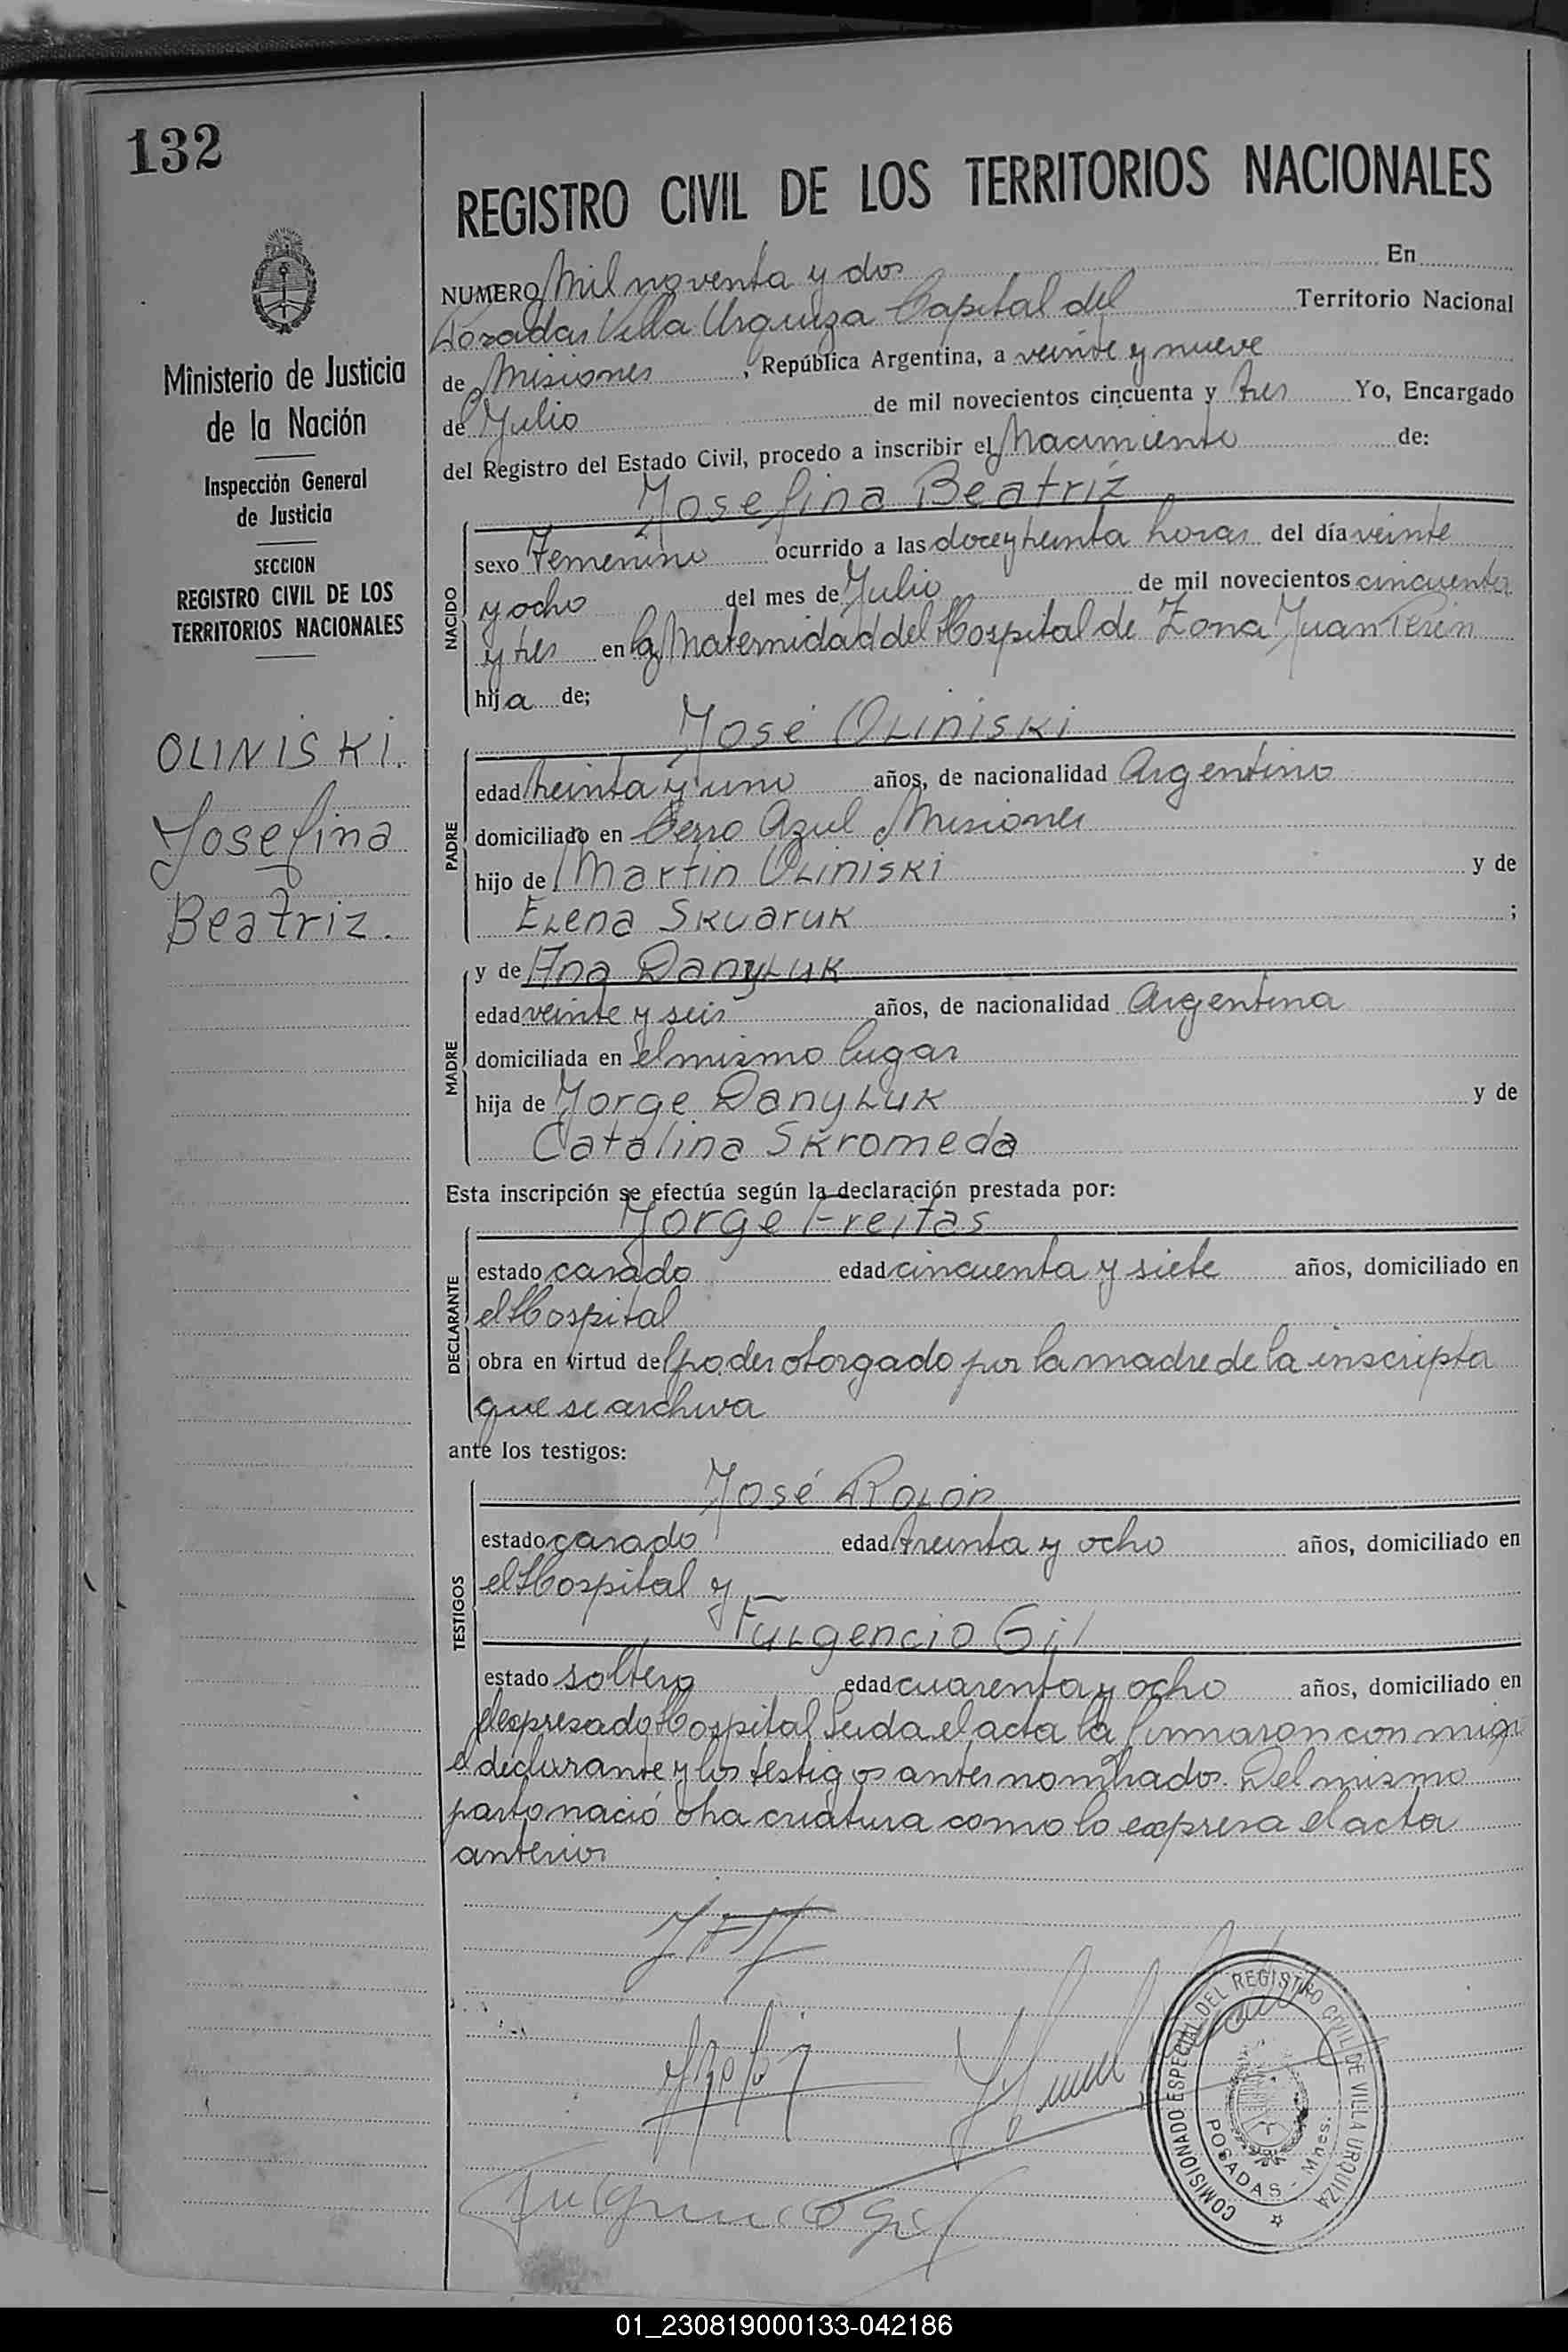 132
REGISTRO CIVIL DE LOS TERRITORIOS NACIONALES
Ministerio de Justicia
de la Nación
Inspección General
de Justicia
SECCION
REGISTRO CIVIL DE LOS
TERRITORIOS NACIONALES
OLINISKI.
Josefina
Beatriz.
NUMERO Mil noventa y dos En
Posadas Villa Urquiza Capital del Territorio Nacional
de Misiones, República Argentina, a veinte y nueve
de Julio de mil novecientos cincuenta y tres Yo, Encargado
del Registro del Estado Civil, procedo a inscribir el Nacimiento de:
Josefina Beatriz
NACIDO
sexo Femenino ocurrido a las doce y treinta horas del día veinte
y ocho del mes de Julio de mil novecientos cincuenta
y tres en la Maternidad del Hospital de Zona Juan Perón
hija de;
José Oliniski
PADRE
edad treinta y uno años, de nacionalidad Argentino
domiciliado en Cerro Azul Misiones
hijo de Martin Oliniski y de
Elena Skvaruk ;
MADRE
y de Ana Danyluk
edad veinte y seis años, de nacionalidad Argentina
domiciliada en el mismo lugar
hija de Jorge Danyluk y de
Catalina Skromeda
Esta inscripción se efectúa según la declaración prestada por:
Jorge Freitas
DECLARANTE
estado casado edad cincuenta y siete años, domiciliado en
el Hospital
obra en virtud del poder otorgado por la madre de la inscripta
que se archiva
ante los testigos:
José Rolón
TESTIGOS
estado casado edad treinta y ocho años, domiciliado en
el Hospital y
Fulgencio Gil
estado soltero edad cuarenta y ocho años, domiciliado en
el expresado Hospital Leida el acta la firmaron con migo
el declarante y los testigos antes nombrados. Del mismo
parto nació otra criatura como lo expresa el acta
anterior
Fulgencio Gil
COMISIONADO ESPECIAL DEL REGISTRO CIVIL DE VILLA URQUIZA
POSADAS - Mnes.
01_230819000133-042186